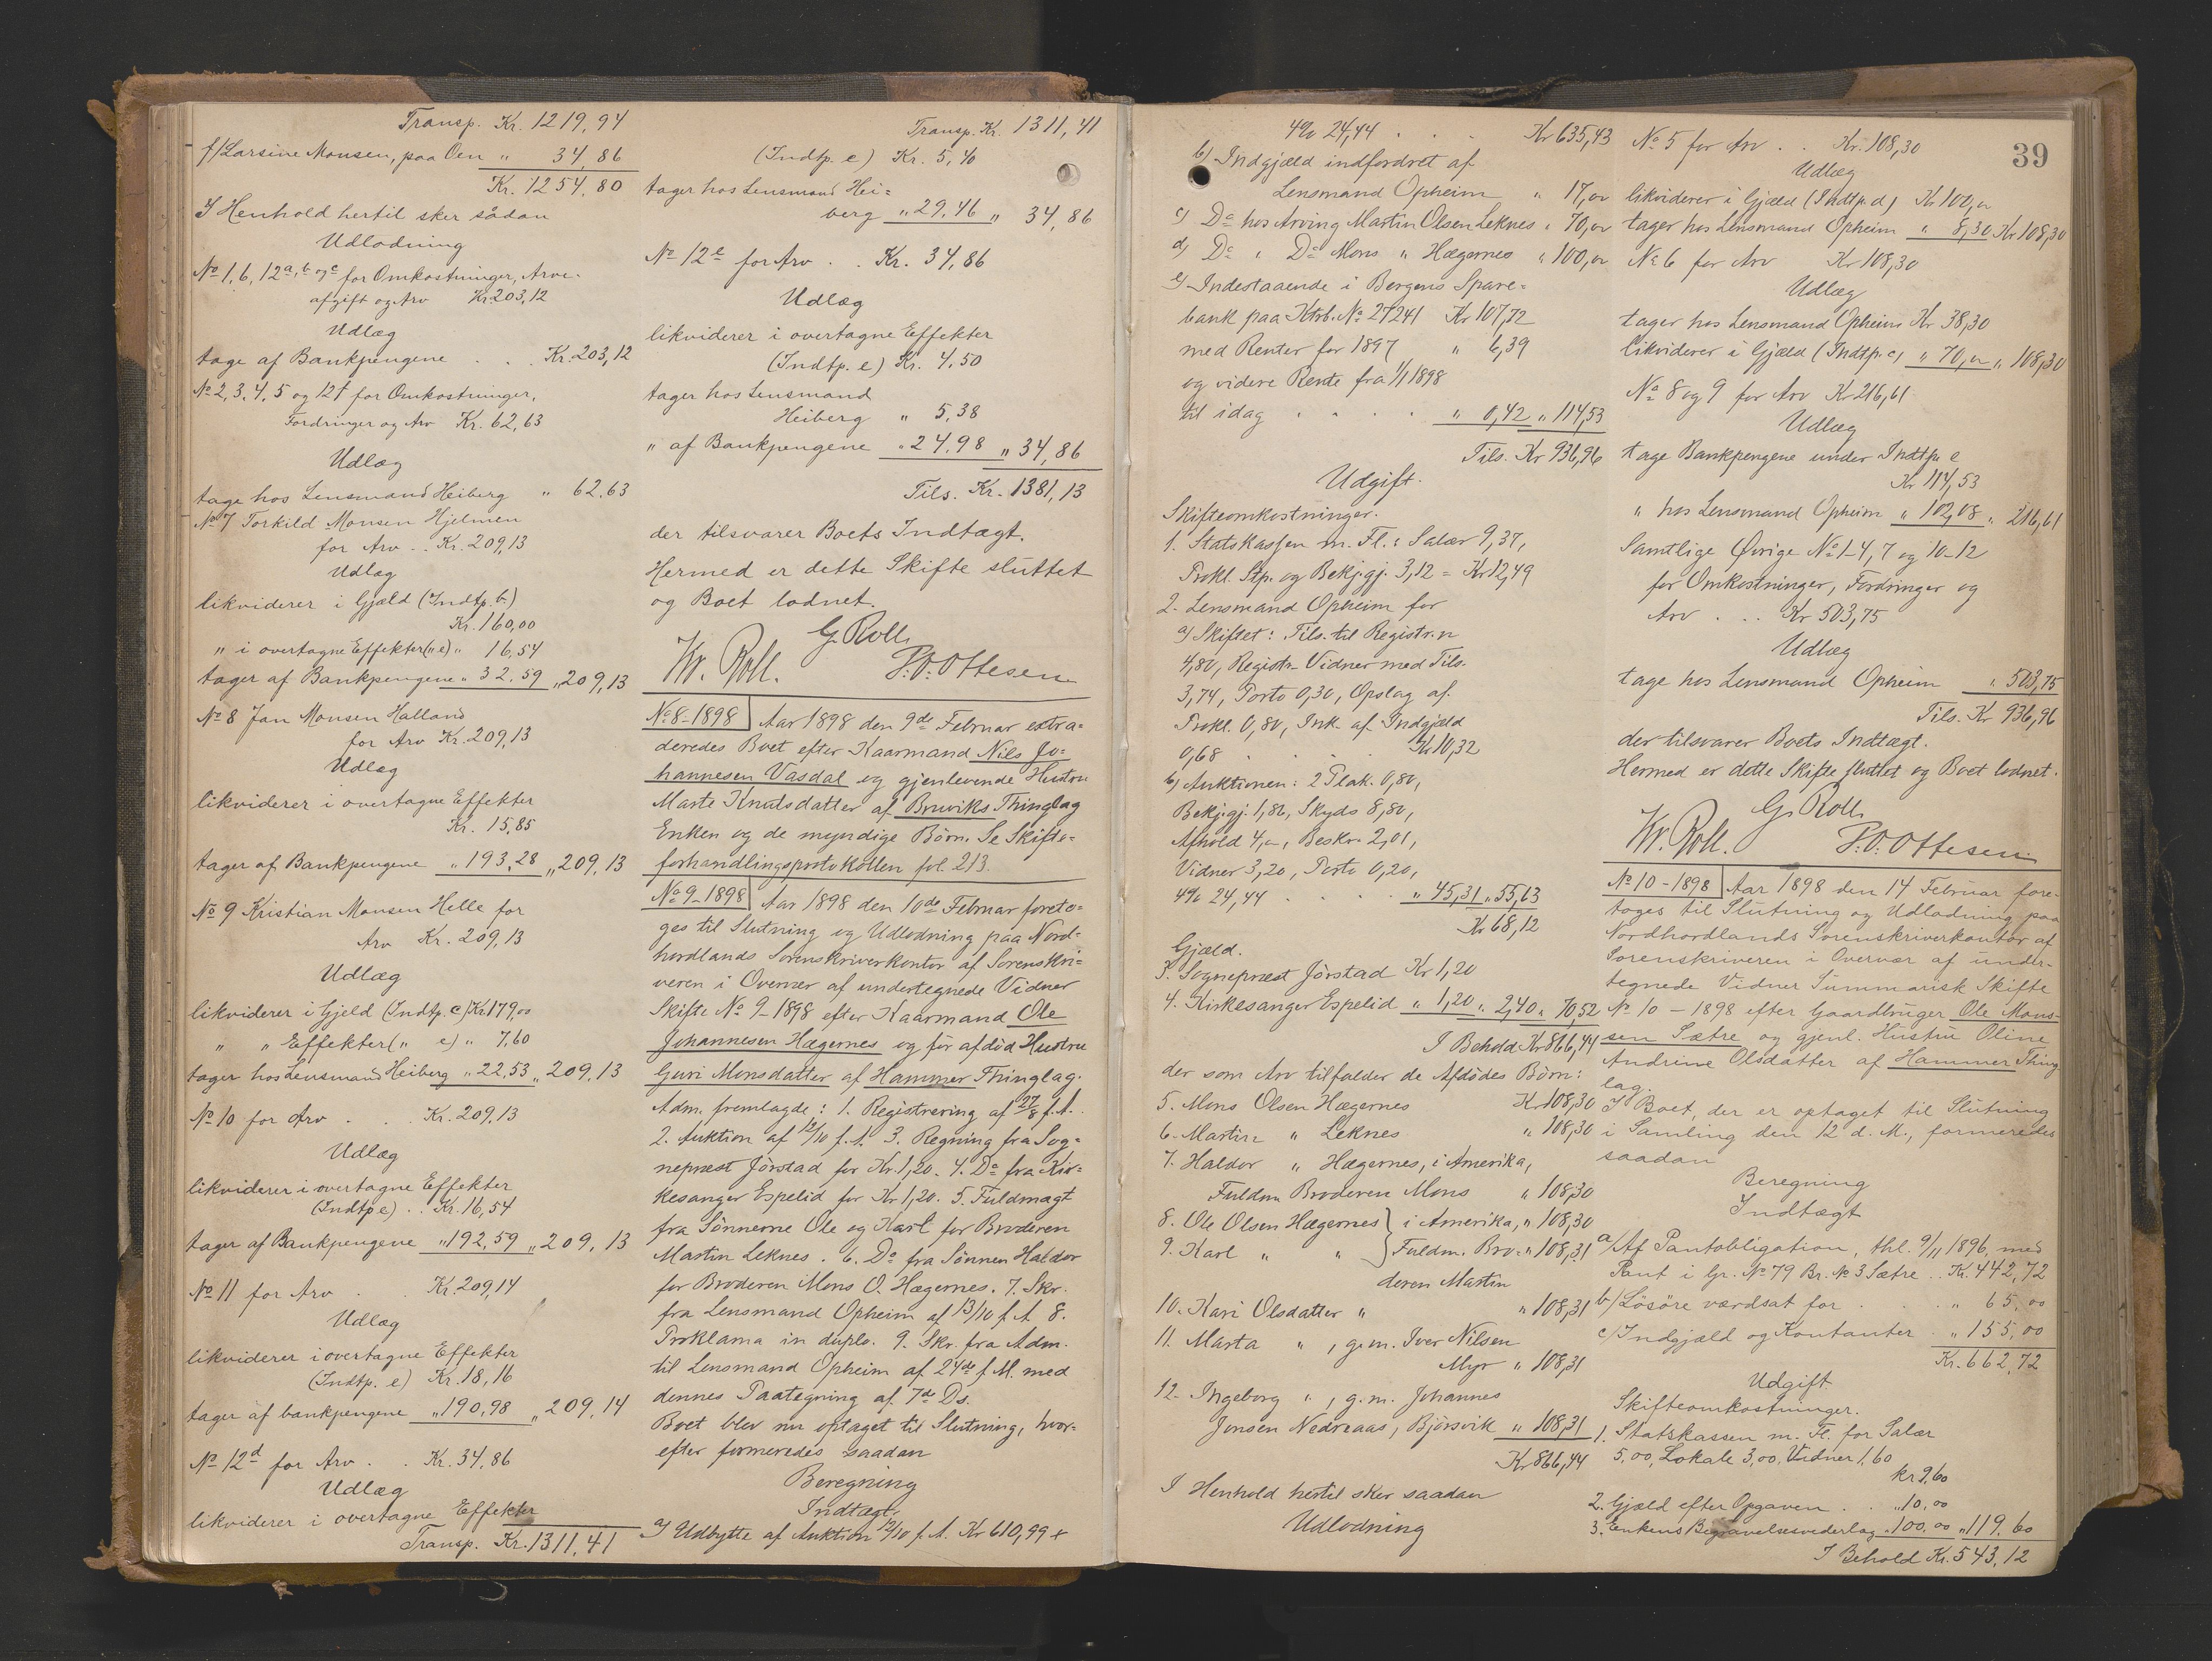 Transp. Kr. 1219,94
f/ Larsine Monsen, paa Öen " 34,86
Kr. 1254,80
I Henhold hertil sker sådan
Udlodning
No 1, 6, 12a, b og c for Omkostninger, Arve-
afgift og Arv Kr. 203,12
Udlæg
tage af Bankpengene . . Kr. 203,12
No 2, 3, 4, 5 og 12f for Omkostninger,
Fordringer og Arv Kr. 62,63
Udlæg
tage hos Lensmand Heiberg " 62,63
No 7 Torkild Monsen Hjelmen
for Arv . . Kr. 209,13
Udlæg
likviderer i Gjæld (Indtp. b.)
Kr. 160,00
" i overtagne Effekter (" e) " 16,54
tager af Bankpengene " 32,59 " 209,13
No 8 Jan Monsen Halland
for Arv Kr. 209,13
Udlæg
likviderer i overtagne Effekter
Kr. 15,85
tager af Bankpengene " 193,28 " 209,13
No 9 Kristian Monsen Helle for
Arv Kr. 209,13
Udlæg
likviderer i Gjeld (Indtp. c) Kr 179,00
" " Effekter (" e) " 7,60
tager hos Lensmand Heiberg " 22,53 " 209,13
No 10 for Arv . . Kr. 209,13
Udlæg
likviderer i overtagne Effekter
(Indtp e) . . Kr. 16,54
tager af Bankpengene " 192,59 " 209,13
No 11 for Arv . . Kr. 209,14
Udlæg
likviderer i overtagne Effekter
(Indtp. e) Kr. 18,16
tager af bankpengene " 190,98 " 209,14
No 12d for Arv . . Kr. 34,86
Udlæg
likviderer i overtagne Effekter
Transp. Kr. 1311,41
Transp. Kr. 1311,41
(Indtp. e) Kr. 5,40
tager hos Lensmand Hei=
berg " 29,46 " 34,86
No 12e for Arv . . Kr. 34,86
Udlæg
likviderer i overtagne Effekter
(Indtp. e) Kr. 4,50
tager hos Lensmand
Heiberg " 5,38
" af Bankpengene " 24,98 " 34,86
Tils. Kr. 1381,13
der tilsvarer Boets Indtægt.
Hermed er dette Skifte sluttet
og Boet lodnet.
G. Roll.
Kr. Roll. P.O. Ottesen
No 8-1898 Aar 1898 den 9de Februar extra=
deredes Boet efter Kaarmand Nils Jo=
hannesen Vasdal og gjenlevende Hustru
Marte Knutsdatter af Bruviks Thinglag
Enken og de myndige Börn. Se Skifte=
forhandlingsprotokollen fol. 213.
No 9-1898 Aar 1898 den 10de Februar foreto=
ges til Slutning og Udlodning paa Nord=
hordlands Sorenskriverkontor af Sorenskri=
veren i Overvær af undertegnede Vidner
Skifte No 9-1898 efter Kaarmand Ole
Johannesen Hægernes og för afdöd Hustru
Guri Monsdatter af Hammer Thinglag.
Adm. fremlagde: 1. Registrering af 27/8 f.A.
2. Auktion af 12/10 f.A. 3. Regning fra Sog=
neprest Jörstad for Kr. 1,20. 4. Do fra Kir=
kesanger Espelid for Kr 1,20. 5. Fuldmagt
fra Sönnerne Ole og Karl for Broderen
Martin Leknes. 6. Do fra Sönnen Haldor
for Broderen Mons O. Hægernes. 7. Skr.
fra Lensmand Opheim af 13/10 f.A. 8.
Proklama in duplo. 9. Skr. fra Adm.
til Lensmand Opheim af 24de f.M. med
dennes Paategning af 7de Ds.
Boet blev nu optaget til Slutning, hvor=
efter formeredes saadan
Beregning
Indtægt.
a) Udbytte af Auktion 12/10 f.A. Kr 610,99 +
4% 24,44 . . . Kr 635,43
b) Indgjæld indfordret af
Lensmand Opheim " 17,00
c) Do hos Arving Martin Olsen Leknes " 70,00
d) Do " Do Mons " Hægernes " 100,00
e) Indestaaende i Bergens Spare=
bank paa Ktrb. No 27241 Kr 107,72
med Renter for 1897 " 6,39
og videre Rente fra 1/1 1898
til idag . . . . " 0,42 " 114,53
Tils. Kr 936,96
Udgift.
Skifteomkostninger.
1. Statskassen m. Fl.: Salær 9,37,
Prokl. Stp. og Bekj.gj. 3,12 = Kr 12,49
2. Lensmand Opheim for
a) Skiftet: Tils. til Registr.n
4,80, Registr. Vidner med Tils.
3,74, Porto 0,30, Opslag af
Prokl. 0,80, Ink. af Indgjæld
0,68 . . Kr 10,32
b) Auktionen: 2 Plak. 0,80,
Bekj.gj. 1,80, Skyds 8,80,
Afhold 4,00, Beskr. 2,01,
Vidner 3,20, Porto 0,20,
4% 24,44 . . . . " 45,31 " 55,63
Kr 68,12
Gjæld.
3. Sogneprest Jörstad Kr 1,20
4. Kirkesanger Espelid " 1,20 " 2,40 " 70,52
I Behold Kr 866,44
der som Arv tilfalder de Afdödes Börn:
5. Mons Olsen Hægernes Kr 108,30
6. Martin " Leknes " 108,30
7. Haldor " Hægernes, i Amerika,
Fuldm. Broderen Mons " 108,30
8. Ole Olsen Hægernes } i Amerika, " 108,30
9. Karl " " } Fuldm. Bro= " 108,31
deren Martin
10. Kari Olsdatter " " 108,31
11. Marta " , g.m. Iver Nilsen
Myr " 108,31
12. Ingeborg " , g.m. Johannes
Jonsen Nedreaas, Björsvik " 108,31
Kr 866,44
I Henhold hertil sker saadan
Udlodning
39
No 5 for Arv . . Kr. 108,30
Udlæg
likviderer i Gjæld (Indtp. d) Kr 100,00
tager hos Lensmand Opheim " 8,30 Kr 108,30
No 6 for Arv Kr 108,30
Udlæg
tager hos Lensmand Opheim Kr 38,30
likviderer i Gjæld (Indtp. c) " 70,00 " 108,30
No 8 og 9 for Arv Kr 216,61
Udlæg
tage Bankpengene under Indtp. e
Kr 114,53
" hos Lensmand Opheim " 102,08 " 216,61
Samtlige Övrige No 1-4, 7 og 10-12
for Omkostninger, Fordringer og
Arv . . . Kr 503,75
Udlæg
tage hos Lensmand Opheim " 503,75
Tils. Kr 936,96
der tilsvarer Boets Indtægt.
Hermed er dette Skifte sluttet og Boet lodnet.
G. Roll.
Kr. Roll. P.O. Ottesen
No 10-1898 Aar 1898 den 14 Februar fore-
toges til Slutning og Udlodning paa
Nordhordlands Sorenskriverkontor af
Sorenskriveren i Overvær af under-
tegnede Vidner Summarisk Skifte
No 10 - 1898 efter Gaardbruger Ole Mons-
sen Sætre og gjenl. Hustru Oline
Andrine Olsdatter af Hammer Thing
lag.
I Boet, der er optaget til Slutning
i Samling den 12 d. M., formeredes
saadan
Beregning
Indtægt
a/ Af Pantobligation, thl. 9/11 1896, med
Pant i Gr. No 79 Br. No 3 Sætre . . Kr. 442,72
b/ Lösöre værdsat for . . . " 65,00
c/ Indgjæld og Kontanter . " 155,00
Kr. 662,72
Udgift
Skifteomkostninger.
1. Statskassen m. Fl. for Salær
5,00, Lokale 3,00, Vidner 1,60
kr 9,60
2. Gjæld efter Opgaven . . " 10,00
3. Enkens Begravelsesvederlag " 100,00 " 119,60
I Behold Kr. 543,12